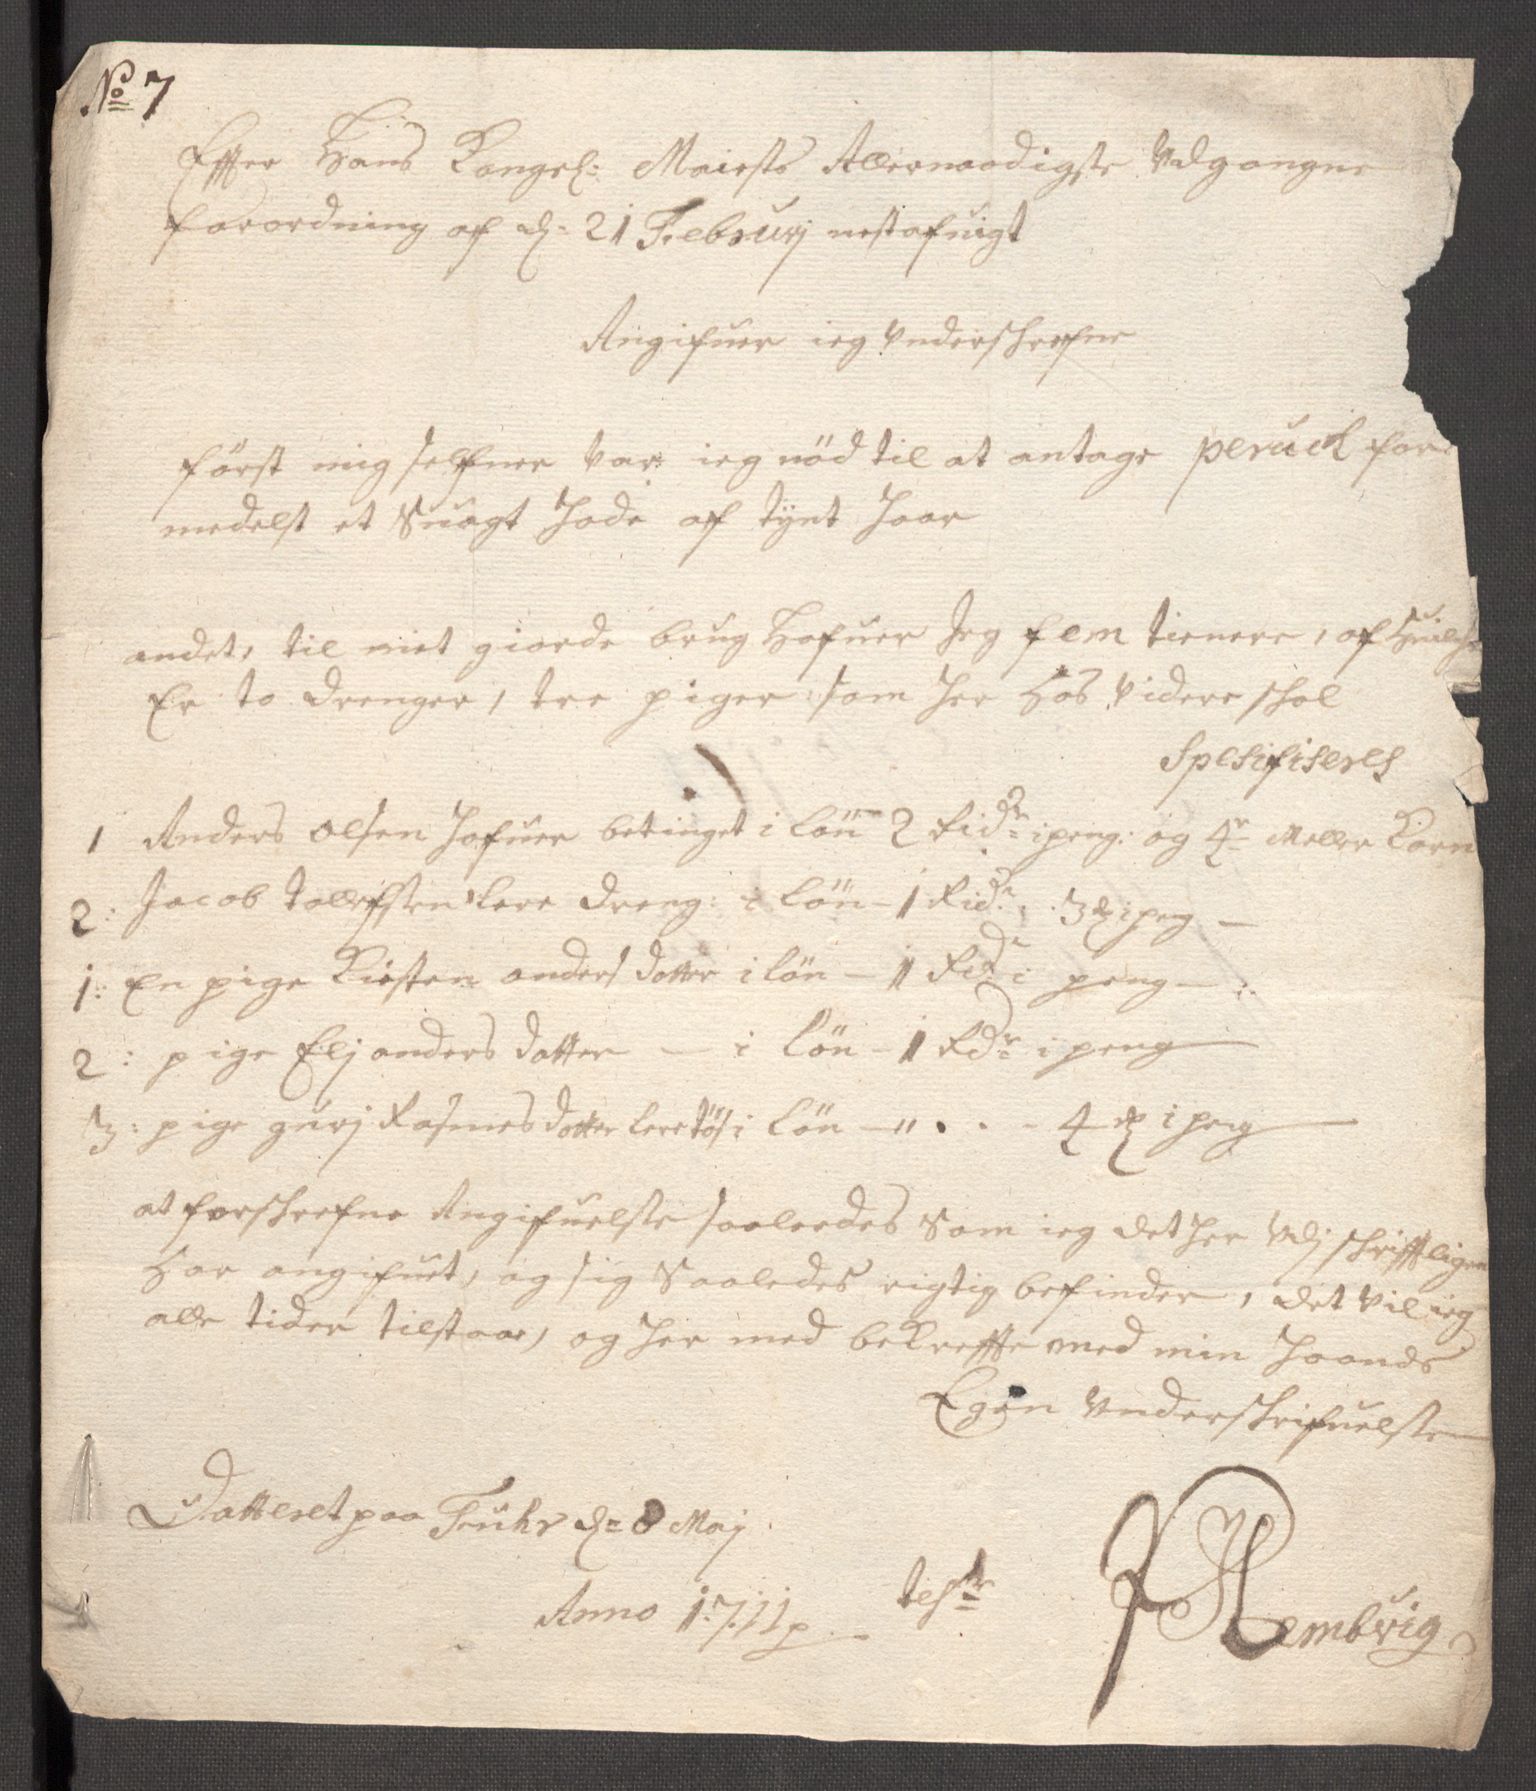 No 7
Effter Hans Kongel: Maiests Allernaadigste Udgangne
forordning af d: 21 Februarj nestafuigt
Angifuer ieg Underschrefne
först mig selfuer var ieg nöd til at antage peruck for
medelst et Suagt Hode af tÿnt Haar
andet, til mit giorde brug Hafuer Jeg fem tienere, af Huilche
Er to drenger, tre piger som her Hos videre schal
Spesifiseres
1 Anders Olsen Hafuer betinget i lön 2 Ridr i peng: og 4r Meller Korn
2: Jacob tollefsen lere dreng: i lön – 1 Ridr: 3 # i peng –
1: En pige Kirsten anders datter i lön – 1 Rdr i peng –
2: pige Elj anders datter – i lön – 1 Rdr i peng
3: pige gurj Rasmes datter leretös i lön – " . . - 4 # i peng
at forschrefne Angifuelse saaledes Som ieg det her Udj schrifftligen
Har angifuet, og sig Saaledes rigtig befinder, det vil ieg
alle tider tilstaae, og Her med bekreffte med min Haands
Egen Underschrifuelse
Datteret paa Fruhr d: 8 Maj
Anno 1711
test
Hembrig